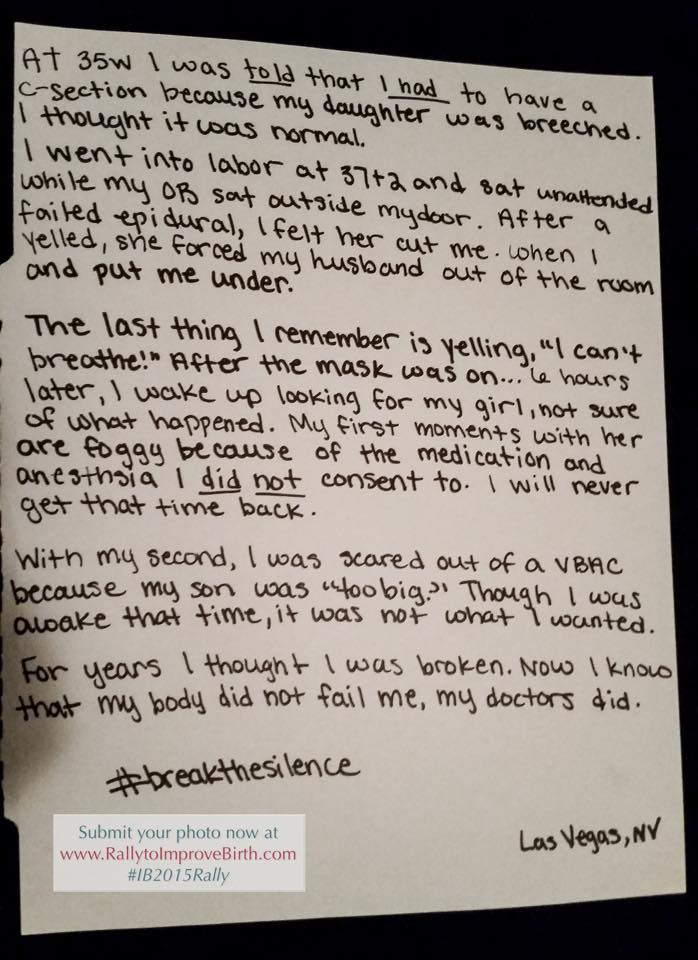 At 35w I was told that I had to have a
C-section because my daughter was breeched.
I thought it was normal.
I went into labor at 37+2 and sat unattended
while my OB sat outside my door. After a
failed epidural, I felt her cut me. When I
yelled, she forced my husband out of the room
and put me under.
The last thing I remember is yelling, "I can't
breathe!" After the mask was on... 6 hours
later, I wake up looking for my girl, not sure
of what happened. My first moments with her
are foggy because of the medication and
anesthsia I did not consent to. I will never
get that time back.
With my second, I was scared out of a VBAC
because my son was "too big." Though I was
awake that time, it was not what I wanted.
For years I thought I was broken. Now I know
that my body did not fail me, my doctors did.
#breakthesilence
Las Vegas, NV
Submit your photo now at
www.RallytoImproveBirth.com
#IB2015Rally